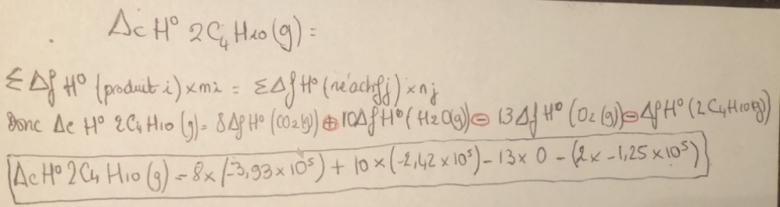 . ΔcH° 2C₄H₁₀(g) =
ΣΔfH° (produit i) × mi = ΣΔfH° (réactif j) × nj
Donc Δc H° 2C₄H₁₀ (g) = 8ΔfH° (CO₂(g)) ⊕ 10ΔfH° (H₂O(g)) ⊖ 13ΔfH° (O₂(g)) ⊖ ΔfH° (2C₄H₁₀(g))
ΔcH° 2C₄H₁₀(g) = 8×(-3,93×10⁵) + 10×(-2,42×10⁵) - 13×0 - (2×-1,25×10⁵)